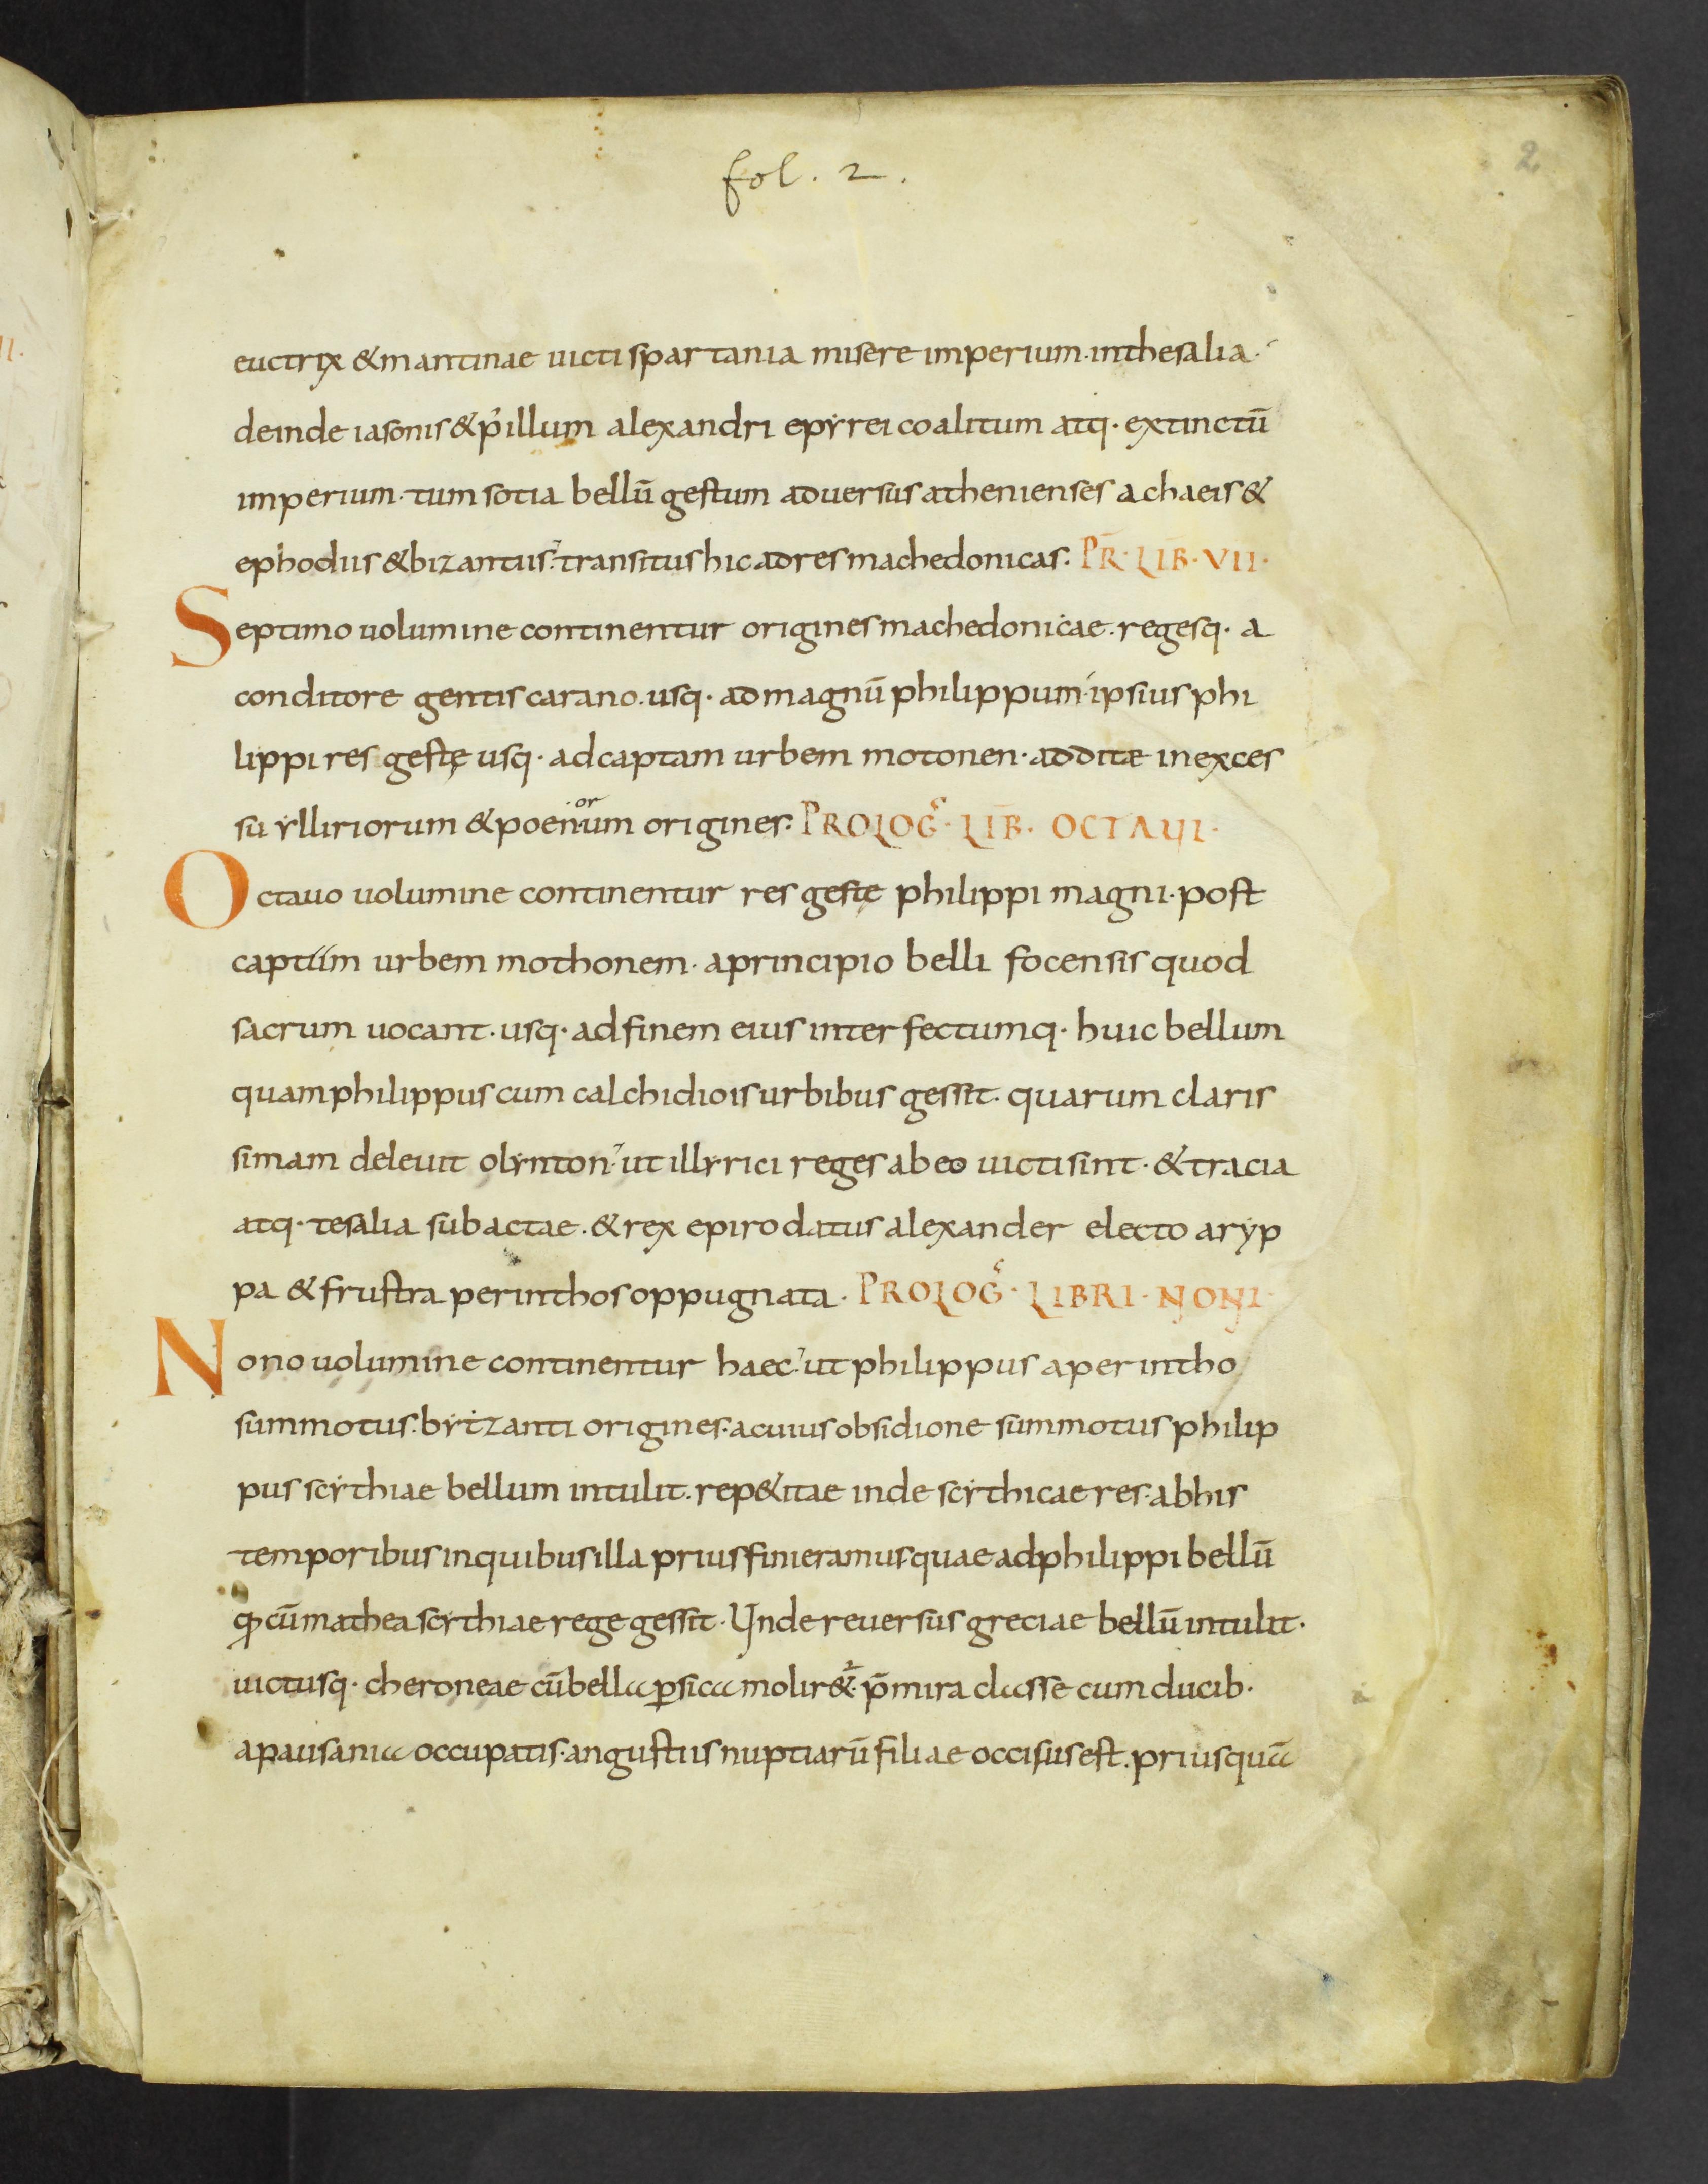 fol. 2.
2
euctrix & mantinae uicti spartania misere imperium. in thesalia.
deinde iasonis & p' illum alexandri epyrei coalitum atq· extinctū
imperium. tum sotia bellū gestum aduersus athenienses a chaeis &
ephodiis & bizantiis. transitus hic ad res machedonicas. PR̄· LIB̄· VII·
Septimo uolumine continentur origines machedonicae. regesq· a
conditore gentis carano. usq· ad magnū philippum. ipsius phi
lippi res gestę usq· ad captam urbem motonen· additae in exces
su ylliriorum & poen·or·um origines. PROLOḠ· LIB̄· OCTAUI·
Octauo uolumine continentur res gestę philippi magni. post
captiim urbem mothonem. a principio belli focensis quod
sacrum uocant. usq· ad finem eius interfectumq· huic bellum
quam philippus cum calchidiois urbibus gessit. quarum claris
simam deleuit olynton. ut illyrici reges ab eo uicti sint. & tracia
atq· tesalia subactae. & rex epiro datus alexander electo aryp
pa & frustra perinthos oppugnata. PROLOḠ· LIBRI· NONI·
Nono uolumine continentur haec. ut philippus a perintho
summotus. bytzanti origines. a cuius obsidione summotus philip
pus scythiae bellum intulit. rep&itae inde scythicae res. ab his
temporibus in quibus illa prius finieramus. quae ad philippi bellū
ꝙ cū mathea scythiae rege gessit. Unde reuersus greciae bellū intulit.
uictusq· cheroneae cū bella ꝑsica molir&. p̄mira classe cum ducib·
a pausania occupatis. angustiis nuptiarū filiae occisus est. priusquā